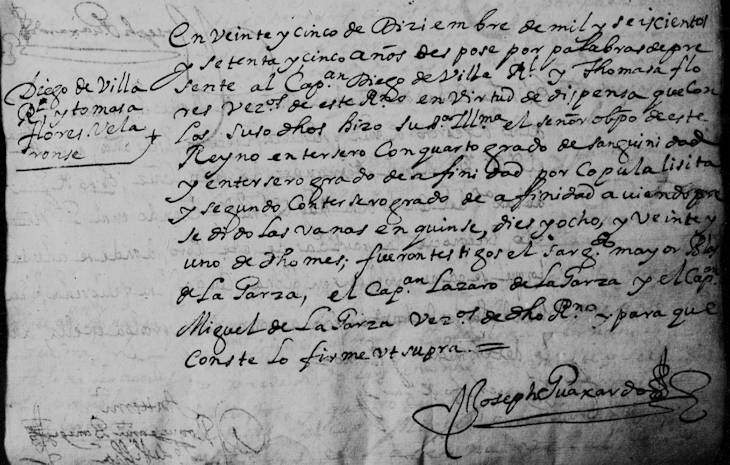 En Veinte y cinco de Diziembre de mil y seiscientos
y setenta y cinco años despose por palabras de pre
sente al Cap.an Diego de Villa R.l y Thomasa flo
res Vez.os de este R.no en virtud de dispensa que con
los suso dhos hizo su s.a Ill.ma el señor obpo de este
Reyno en tersero Con quarto grado de sanguinidad
y en tersero grado de afinidad por Copula lisita
y segundo Con tersero grado de afinidad aviendo pre
sedido las vanas en quinse, dies y ocho, y Veinte y
uno de dho mes; fueron testigos el sarg.to mayor Blas
de La Garza, el Cap.an Lazaro de La Garza y el Cap.an
Miguel de La Garza Vez.os de dho R.no y para que
Conste lo firme Vt supra.
Diego de Villa
R.l y tomasa
flores. Vela
ronse
Joseph Guaxardo